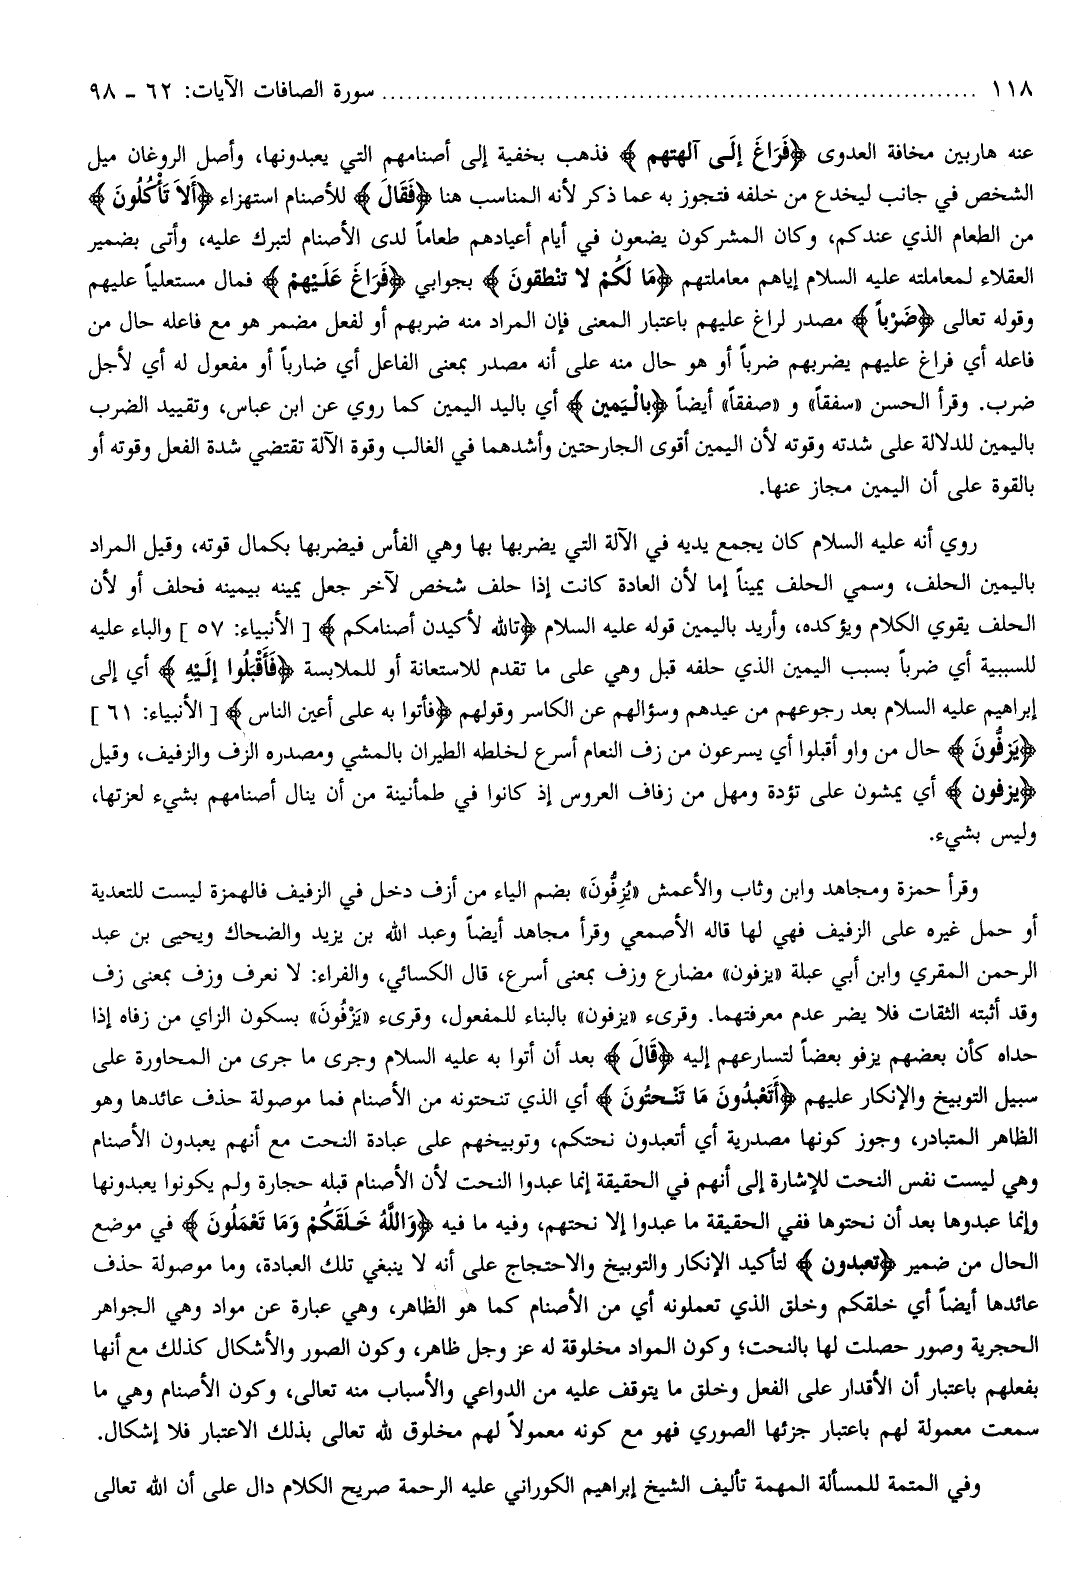 ١١٨ ........................................................................ سورة الصافات الآيات: ٦٢ ـ ٩٨
عنه هاربين مخافة العدوى ﴿فَرَاغَ إِلَى آلهتهم﴾ فذهب بخفية إلى أصنامهم التي يعبدونها، وأصل الروغان ميل
الشخص في جانب ليخدع من خلفه فتجوز به عما ذكر لأنه المناسب هنا ﴿فَقَالَ﴾ للأصنام استهزاء ﴿أَلاَ تَأْكُلُونَ﴾
من الطعام الذي عندكم، وكان المشركون يضعون في أيام أعيادهم طعاماً لدى الأصنام لتبرك عليه، وأتى بضمير
العقلاء لمعاملته عليه السلام إياهم معاملتهم ﴿مَا لَكُمْ لا تنْطقونَ﴾ بجوابي ﴿فَرَاغَ عَلَيْهِمْ﴾ فمال مستعلياً عليهم
وقوله تعالى ﴿ضَرْباً﴾ مصدر لراغ عليهم باعتبار المعنى فإن المراد منه ضربهم أو لفعل مضمر هو مع فاعله حال من
فاعله أي فراغ عليهم يضربهم ضرباً أو هو حال منه على أنه مصدر بمعنى الفاعل أي ضارباً أو مفعول له أي لأجل
ضرب. وقرأ الحسن «سفقاً» و «صفقاً» أيضاً ﴿بالْيَمين﴾ أي باليد اليمين كما روي عن ابن عباس، وتقييد الضرب
باليمين للدلالة على شدته وقوته لأن اليمين أقوى الجارحتين وأشدهما في الغالب وقوة الآلة تقتضي شدة الفعل وقوته أو
بالقوة على أن اليمين مجاز عنها.
روي أنه عليه السلام كان يجمع يديه في الآلة التي يضربها بها وهي الفأس فيضربها بكمال قوته، وقيل المراد
باليمين الحلف، وسمي الحلف يميناً إما لأن العادة كانت إذا حلف شخص لآخر جعل يمينه بيمينه فحلف أو لأن
الحلف يقوي الكلام ويؤكده، وأريد باليمين قوله عليه السلام ﴿تالله لأكيدن أصنامكم﴾ [ الأنبياء: ٥٧ ] والباء عليه
للسببية أي ضرباً بسبب اليمين الذي حلفه قبل وهي على ما تقدم للاستعانة أو للملابسة ﴿فَأَقْبَلُوا إلَيْهِ﴾ أي إلى
إبراهيم عليه السلام بعد رجوعهم من عيدهم وسؤالهم عن الكاسر وقولهم ﴿فأتوا به على أعين الناس﴾ [ الأنبياء: ٦١ ]
﴿يَزفُّونَ﴾ حال من واو أقبلوا أي يسرعون من زف النعام أسرع لخلطه الطيران بالمشي ومصدره الزف والزفيف، وقيل
﴿يزفون﴾ أي يمشون على تؤدة ومهل من زفاف العروس إذ كانوا في طمأنينة من أن ينال أصنامهم بشيء لعزتها،
وليس بشيء.
وقرأ حمزة ومجاهد وابن وثاب والأعمش «يُزِفُّونَ» بضم الياء من أزف دخل في الزفيف فالهمزة ليست للتعدية
أو حمل غيره على الزفيف فهي لها قاله الأصمعي وقرأ مجاهد أيضاً وعبد الله بن يزيد والضحاك ويحيى بن عبد
الرحمن المقري وابن أبي عبلة «يزفون» مضارع وزف بمعنى أسرع، قال الكسائي، والفراء: لا نعرف وزف بمعنى زف
وقد أثبته الثقات فلا يضر عدم معرفتهما. وقرىء «يزفون» بالبناء للمفعول، وقرىء «يَزْفُونَ» بسكون الزاي من زفاه إذا
حداه كأن بعضهم يزفو بعضاً لتسارعهم إليه ﴿قَالَ﴾ بعد أن أتوا به عليه السلام وجرى ما جرى من المحاورة على
سبيل التوبيخ والإنكار عليهم ﴿أَتَعْبُدُونَ مَا تَنْحتُونَ﴾ أي الذي تنحتونه من الأصنام فما موصولة حذف عائدها وهو
الظاهر المتبادر، وجوز كونها مصدرية أي أتعبدون نحتكم، وتوبيخهم على عبادة النحت مع أنهم يعبدون الأصنام
وهي ليست نفس النحت للإشارة إلى أنهم في الحقيقة إنما عبدوا النحت لأن الأصنام قبله حجارة ولم يكونوا يعبدونها
وإنما عبدوها بعد أن نحتوها ففي الحقيقة ما عبدوا إلا نحتهم، وفيه ما فيه ﴿وَاللَّهُ خَلَقَكُمْ وَمَا تَعْمَلُونَ﴾ في موضع
الحال من ضمير ﴿تعبدون﴾ لتأكيد الإنكار والتوبيخ والاحتجاج على أنه لا ينبغي تلك العبادة، وما موصولة حذف
عائدها أيضاً أي خلقكم وخلق الذي تعملونه أي من الأصنام كما هو الظاهر، وهي عبارة عن مواد وهي الجواهر
الحجرية وصور حصلت لها بالنحت؛ وكون المواد مخلوقة له عز وجل ظاهر، وكون الصور والأشكال كذلك مع أنها
بفعلهم باعتبار أن الأقدار على الفعل وخلق ما يتوقف عليه من الدواعي والأسباب منه تعالى، وكون الأصنام وهي ما
سمعت معمولة لهم باعتبار جزئها الصوري فهو مع كونه معمولاً لهم مخلوق لله تعالى بذلك الاعتبار فلا إشكال.
وفي المتمة للمسألة المهمة تأليف الشيخ إبراهيم الكوراني عليه الرحمة صريح الكلام دال على أن الله تعالى